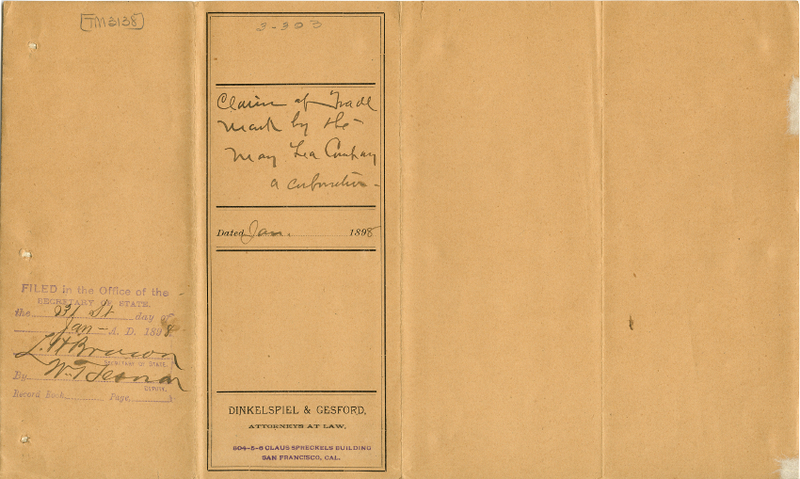 TM3138
3-303
Claim of Trade
Mark by the
May Tea Company
a corporation
Dated Jan. 1898
FILED in the Office of the
SECRETARY OF STATE.
the 31st day of
Jan - A. D. 1898
L. H. Brown
SECRETARY OF STATE.
By
DEPUTY.
Record Book Page
DINKELSPIEL & GESFORD,
ATTORNEYS AT LAW,
804-5-6 CLAUS SPRECKELS BUILDING
SAN FRANCISCO, CAL.